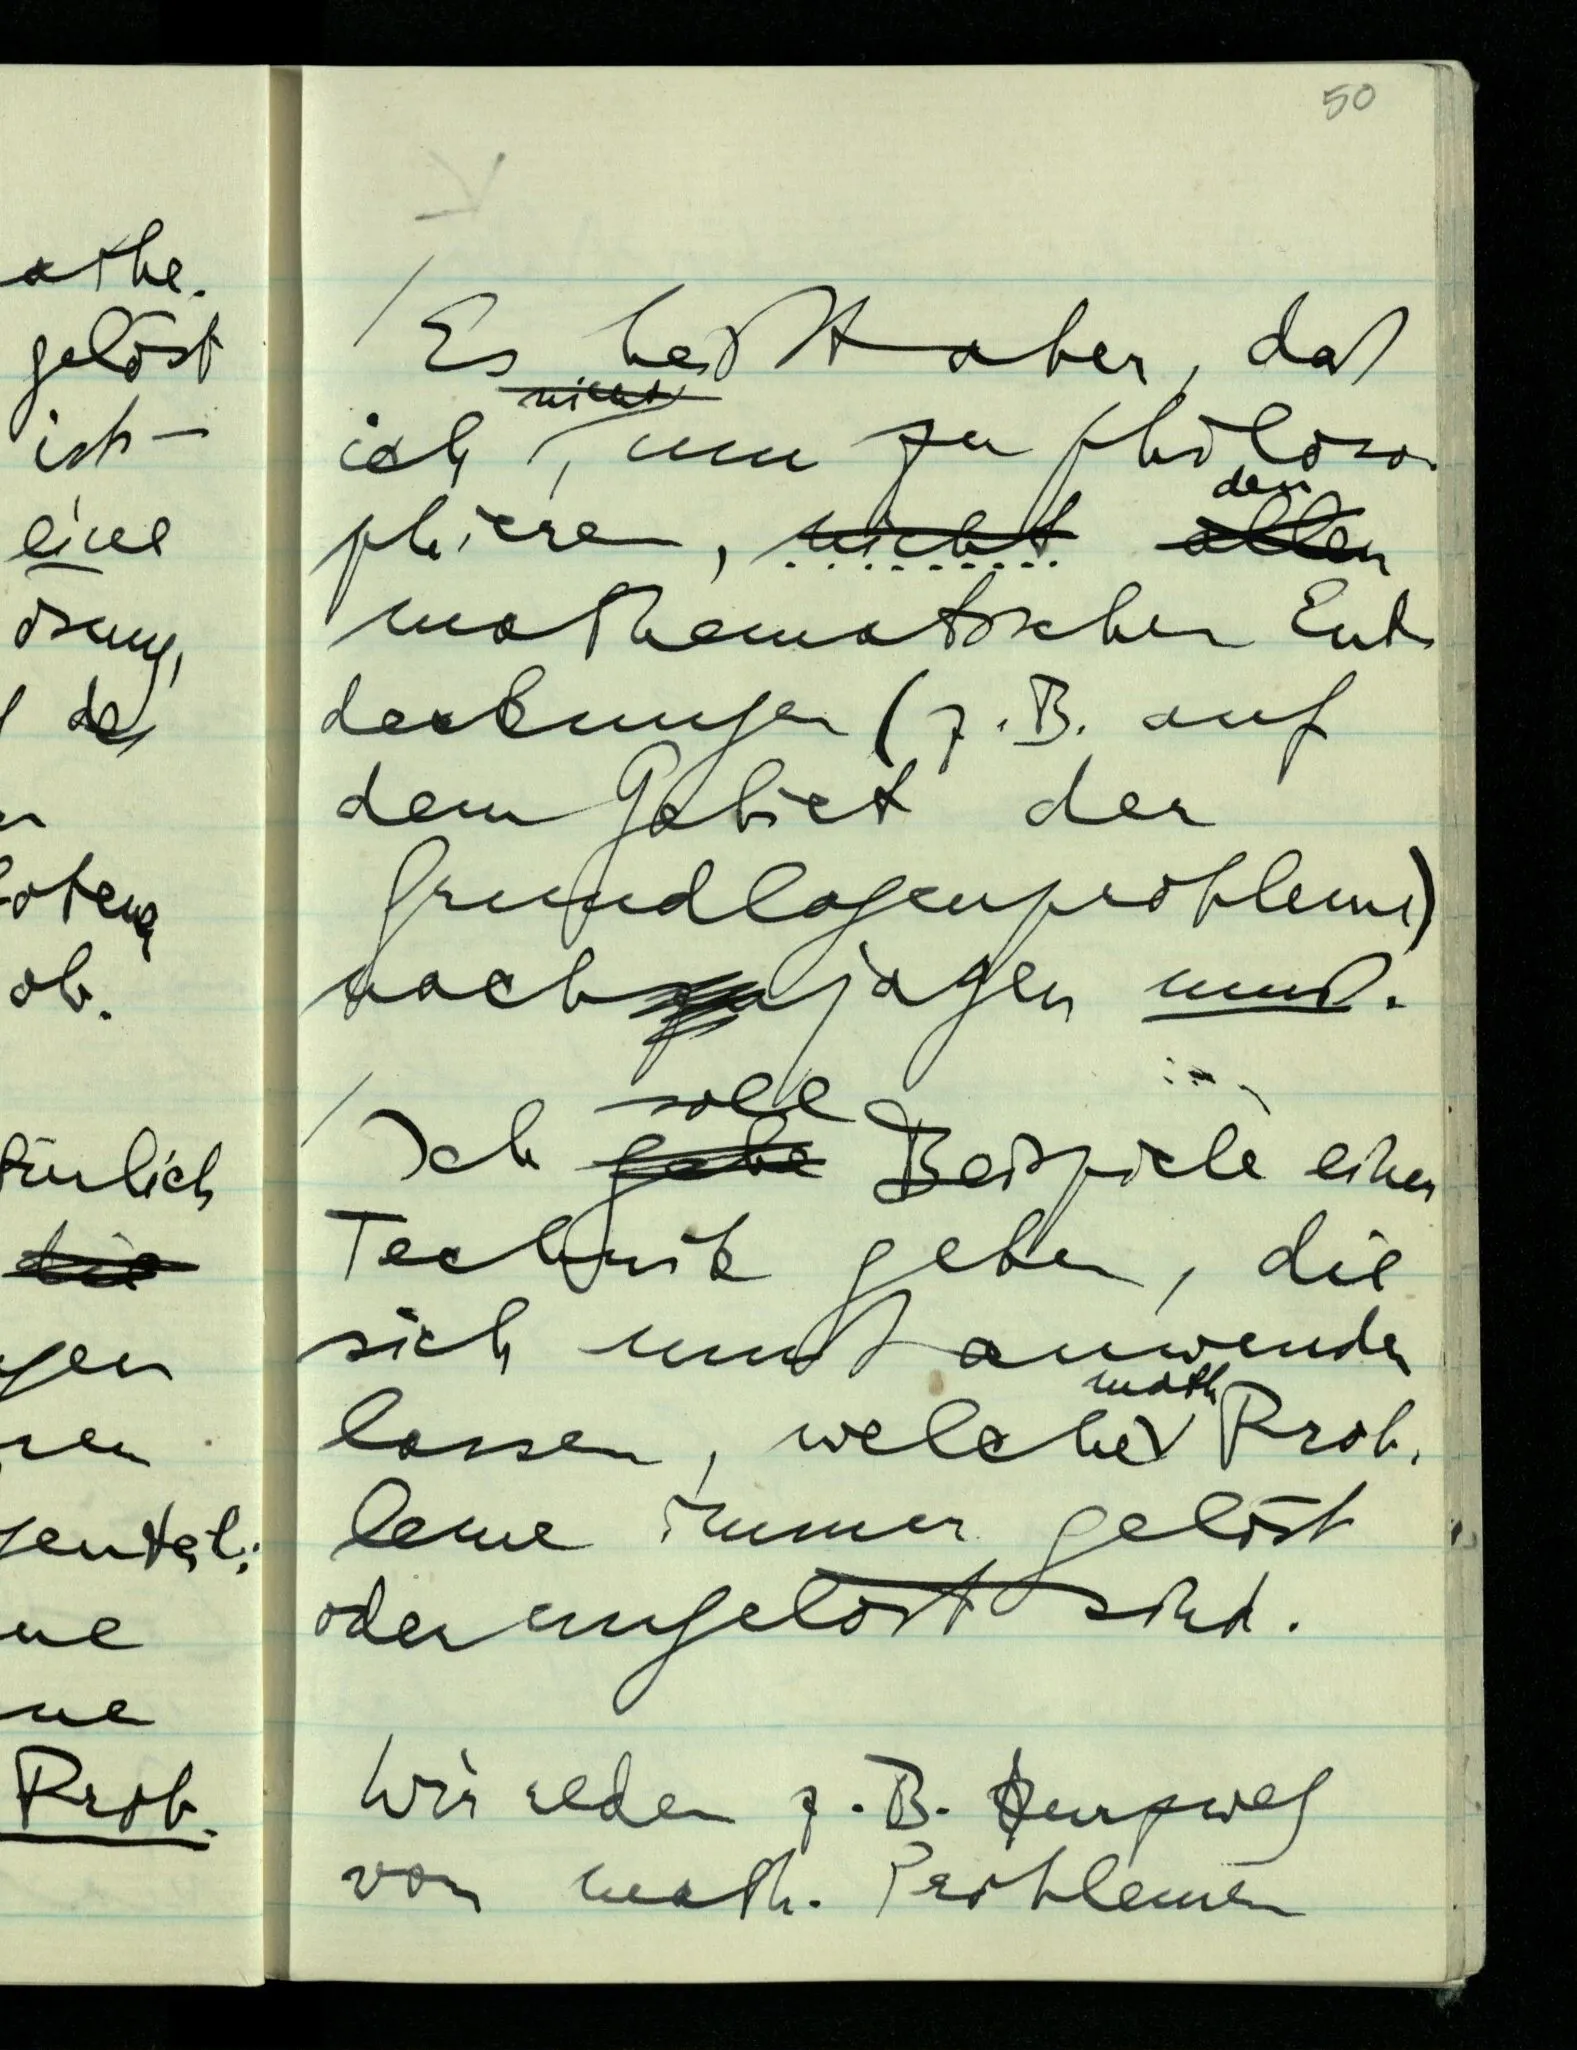 50
athe.
gelöst
ist –
eine
ösung,
des
otene
ob.
türlich
die
gen
ren
ne
ne
Prob.
Es heißt aber, daß
nicht
ich, um zu philoso-
den
phieren, nicht allen
mathematischen Ent-
deckungen (z.B. auf
dem Gebiet der
Grundlagenprobleme)
nachzujagen muß.
soll
Ich gebe Beispiele einer
Technik geben, die
sich muß anwenden
math
lassen, welche Prob-
leme immer gelöst
oder ungelöst sind.
Wir reden z.B. kurzweg
von math. Problemen